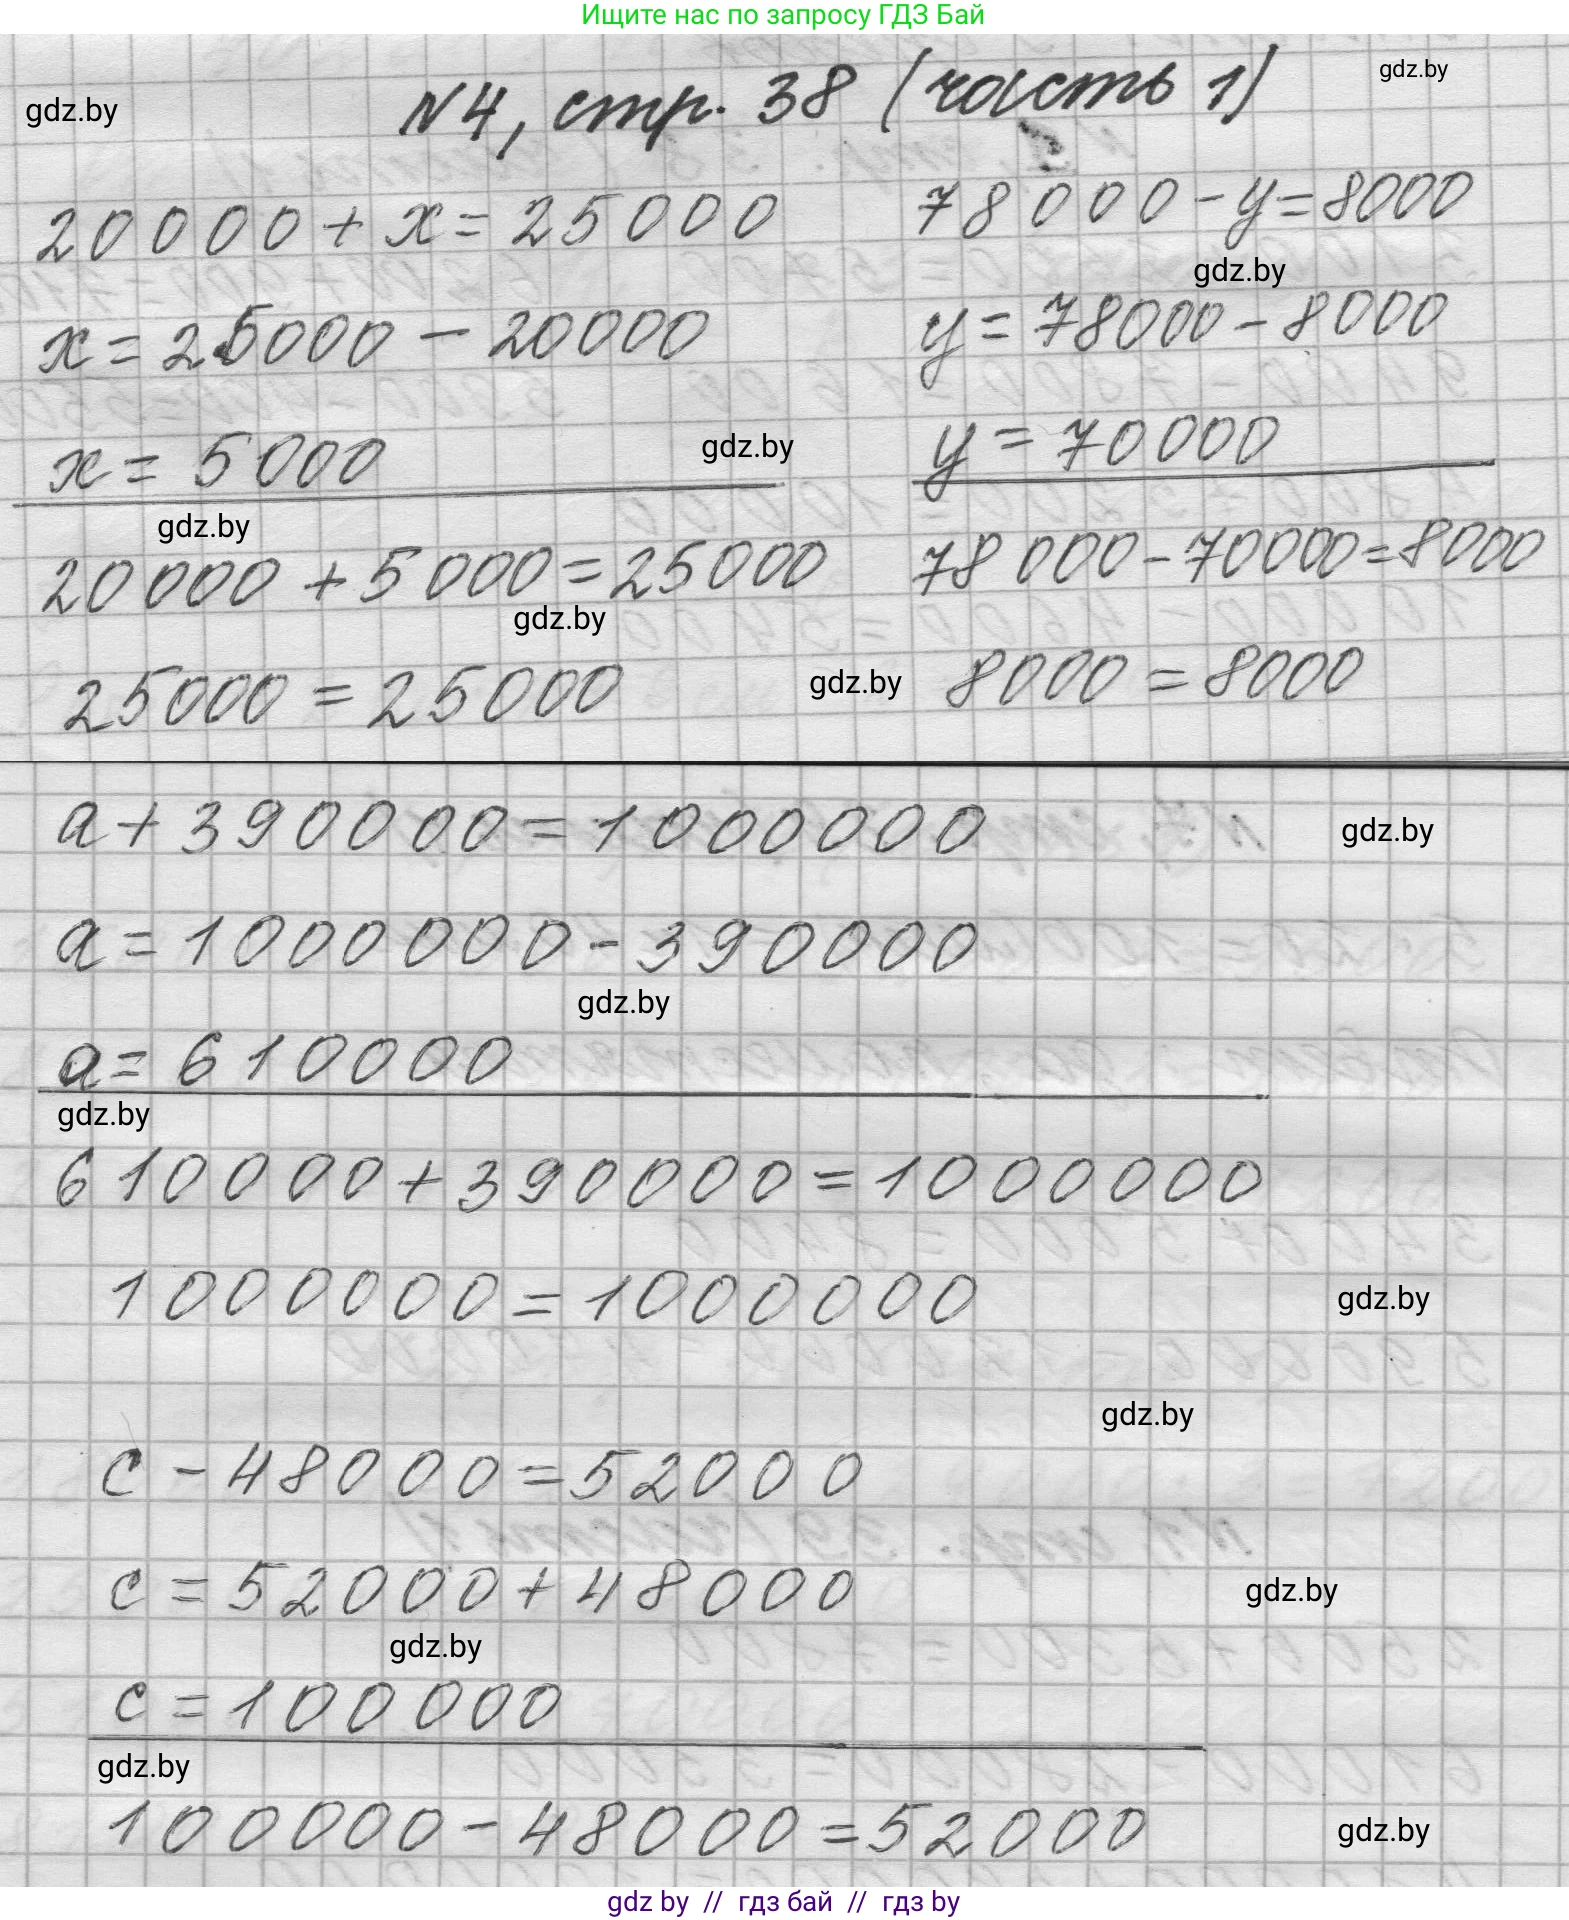 Ищите нас по запросу ГДЗ Бай
gdz.by
gdz.by
N4, стр. 38 (часть 1)
20000 + x = 25000
x = 25000 - 20000
x = 5000
gdz.by
gdz.by
20000 + 5000 = 25000
gdz.by
25000 = 25000
gdz.by
78000 - y = 8000
gdz.by
y = 78000 - 8000
y = 70000
78000 - 70000 = 8000
8000 = 8000
a + 390000 = 1000000
gdz.by
a = 1000000 - 390000
gdz.by
a = 610000
gdz.by
610000 + 390000 = 1000000
1000000 = 1000000
gdz.by
gdz.by
c - 48000 = 52000
c = 52000 + 48000
gdz.by
gdz.by
c = 100000
gdz.by
100000 - 48000 = 52000
gdz.by
gdz by // гдз бай // гдз by